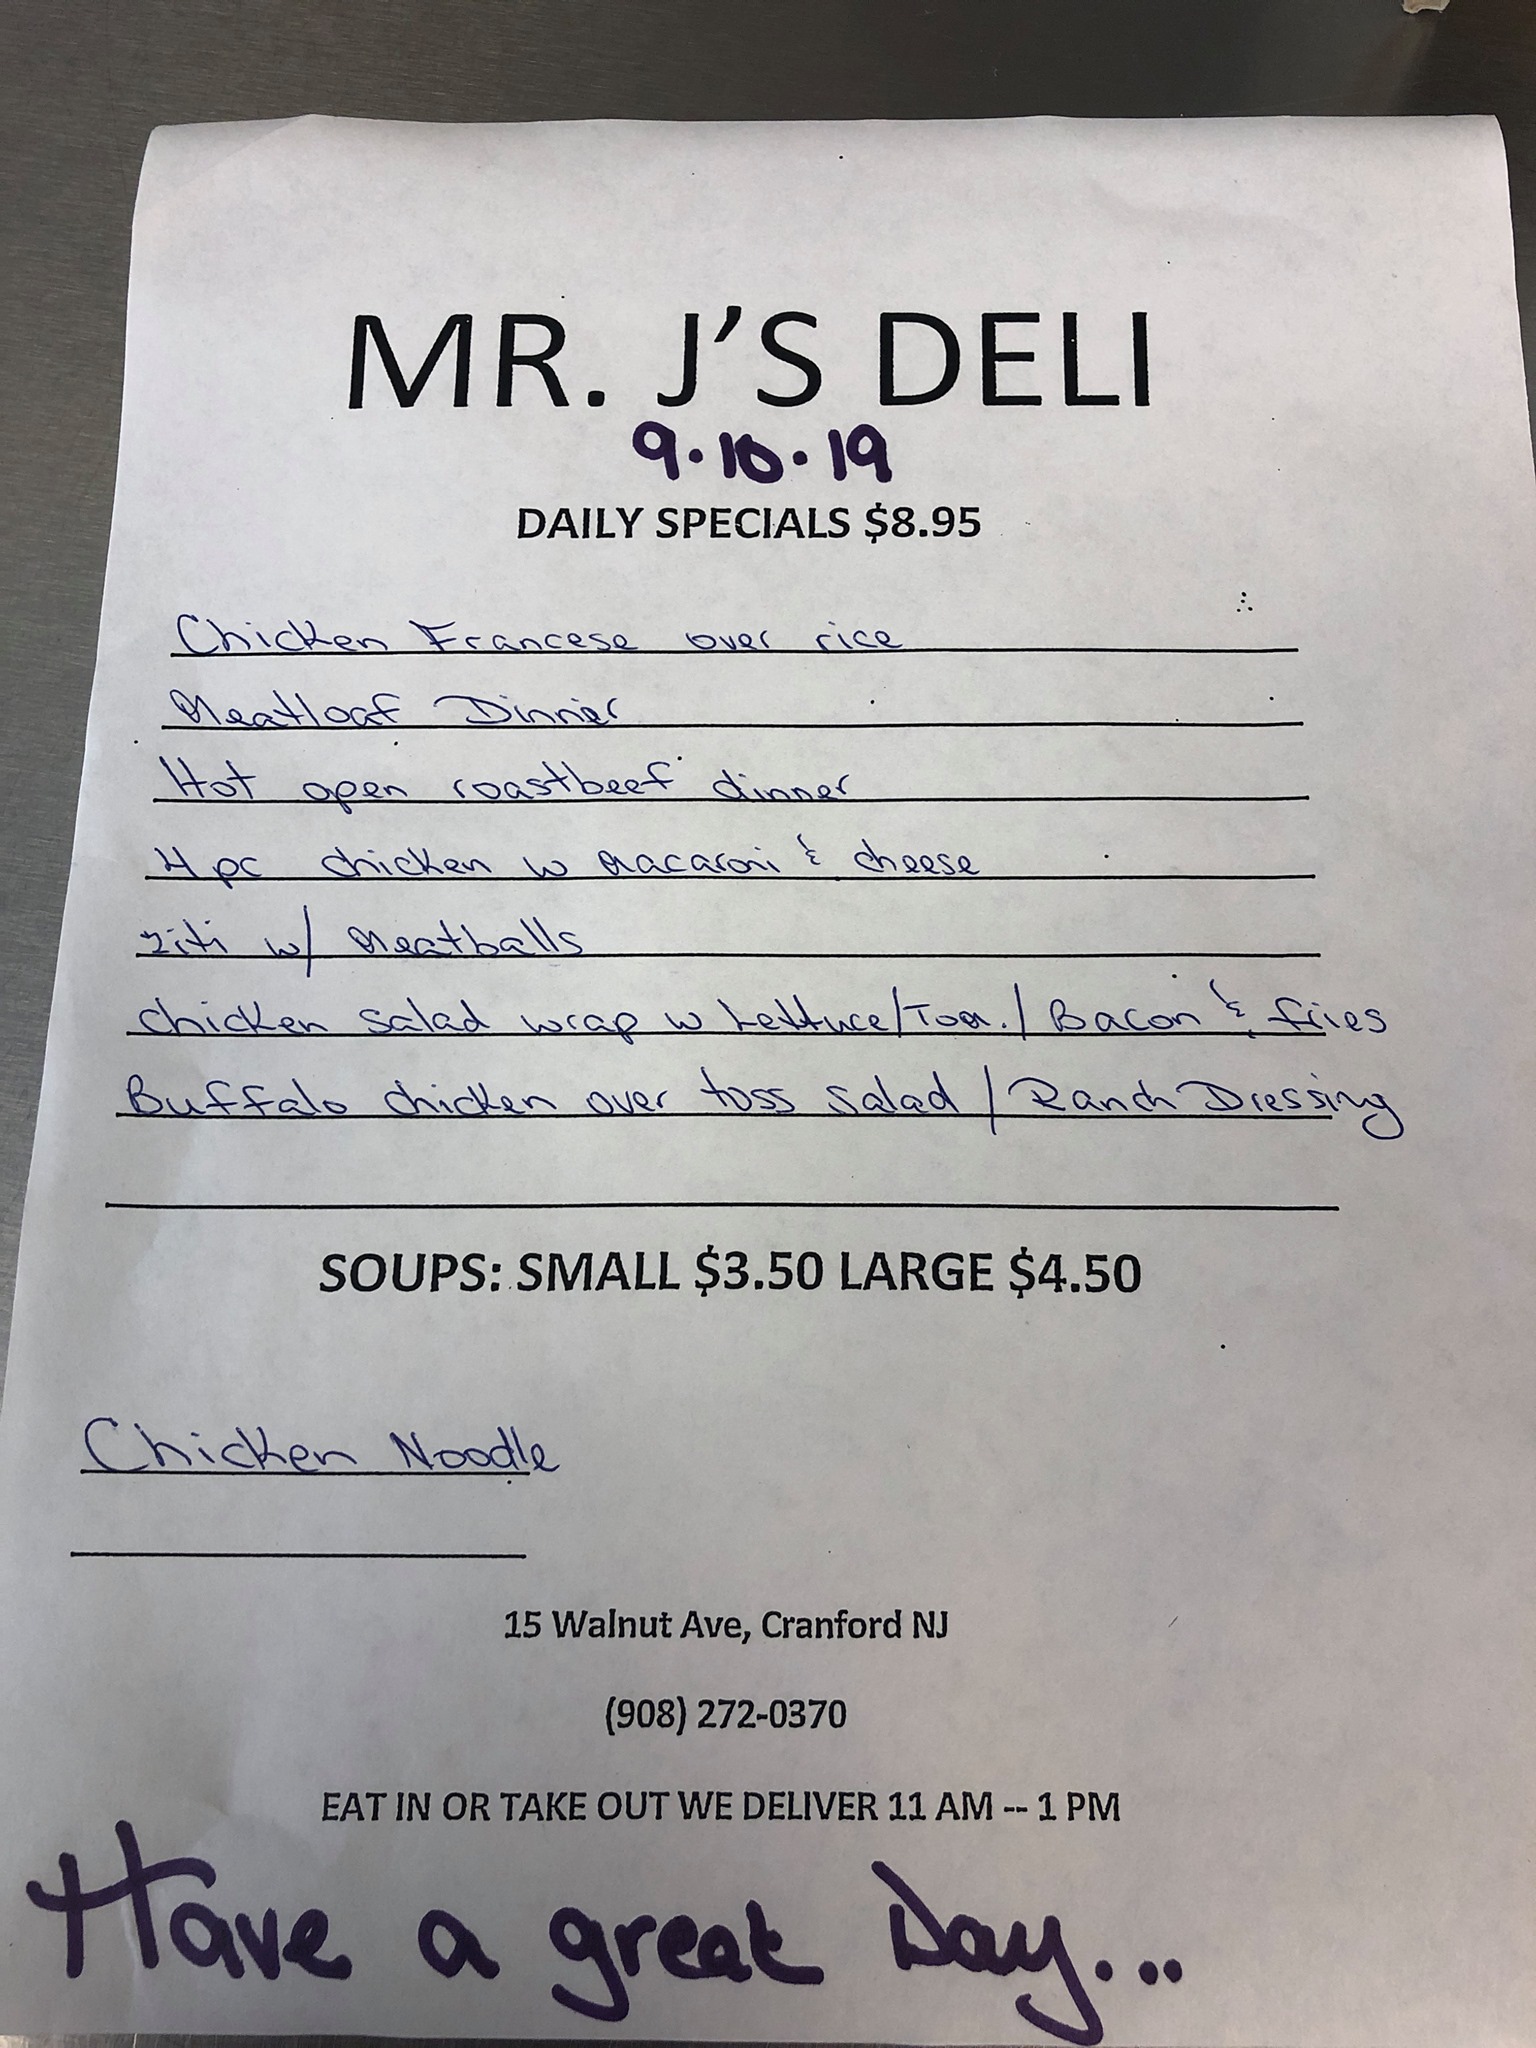 MR. J'S DELI
9.10.19
DAILY SPECIALS $8.95
Chicken Francese over rice
Meatloaf Dinner
Hot open roastbeef dinner
4 pc chicken w macaroni & cheese
ziti w/ Meatballs
chicken salad wrap w Lettuce/Tom./Bacon & fries
Buffalo chicken over toss salad / Ranch Dressing
SOUPS: SMALL $3.50 LARGE $4.50
Chicken Noodle
15 Walnut Ave, Cranford NJ
(908) 272-0370
EAT IN OR TAKE OUT WE DELIVER 11 AM -- 1 PM
Have a great Day...